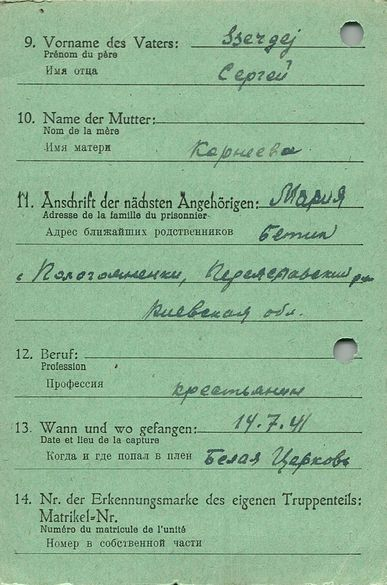 9. Vorname des Vaters: Szergej
Prénom du père
Имя отца Сергей
10. Name der Mutter:
Nom de la mère
Имя матери Корнеева
11. Anschrift der nächsten Angehörigen: Мария
Adresse de la famille du prisonnier
Адрес ближайших родственников
с
Киевская обл.
12. Beruf:
Profession
Профессия крестьянин
13. Wann und wo gefangen: 14.7.41
Date et lieu de la capture
Когда и где попал в плен Белая Церковь
14. Nr. der Erkennungsmarke des eigenen Truppenteils:
Matrikel-Nr.
Numéro du matricule de l'unité
Номер в собственной части